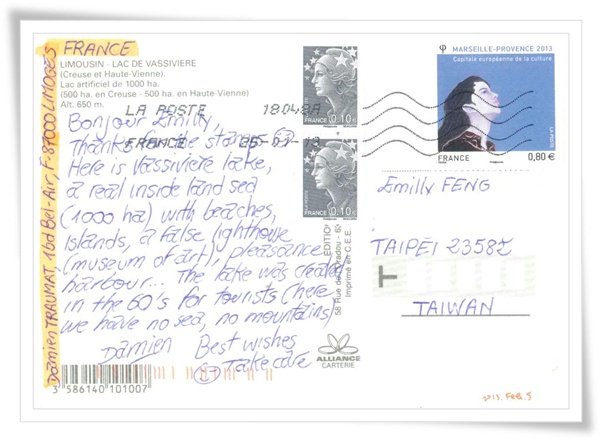 FRANCE
LIMOUSIN - LAC DE VASSIVIERE
(Creuse et Haute-Vienne).
Lac artificiel de 1000 ha.
(500 ha. en Creuse - 500 ha. en Haute-Vienne)
Alt. 650 m.
LA POSTE 18048A
FRANCE 25-01-13
Bonjour Emilly,
Thanks for the stamps
Here is Vassiviere lake,
a real inside land sea
(1000 ha) with beaches,
islands, a false lighthouse
(museum of art), pleasance
harbour... The lake was created
in the 60's for tourists (here
we have no sea, no mountains)
Damien Best wishes
Take care
Damien TRAUMAT 16d Bel-Air, F-87000 LIMOGES
3 586140 101007
EDITIO
58 Rue de
Imprimé en C.E.E.
ALLIANCE
CARTERIE
FRANCE 0,10 €
FRANCE 0,10 €
MARSEILLE-PROVENCE 2013
Capitale européenne de la culture
LA POSTE
FRANCE 0,80 €
Emilly FENG
TAIPEI 23582
TAIWAN
T
2013. Feb. 5